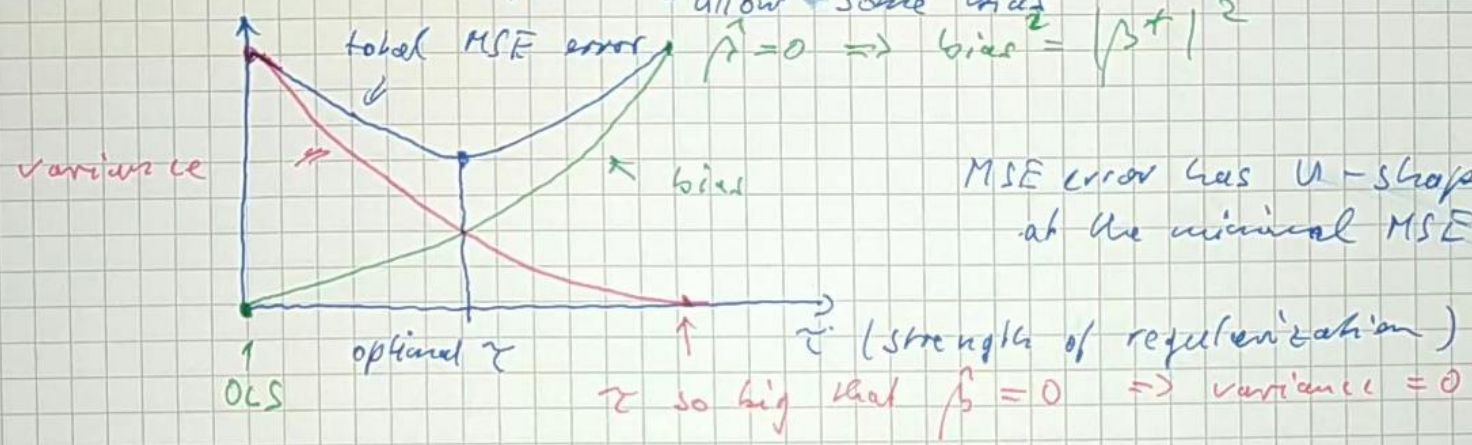 allow some bias
total MSE error β̂ = 0 => bias² = |β*|²
variance
bias
MSE error has U-shap
at the minimal MSE
optimal τ
τ (strength of regularization)
1
OLS
τ so big that β̂ = 0 => variance = 0